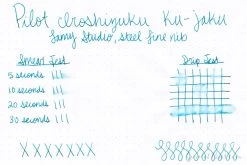 Pilot Iroshizuku Ku-jaku
Lamy Studio, steel fine nib
Smear Test
Drip Test
5 seconds
10 seconds
20 seconds
30 seconds
X X X X X X X